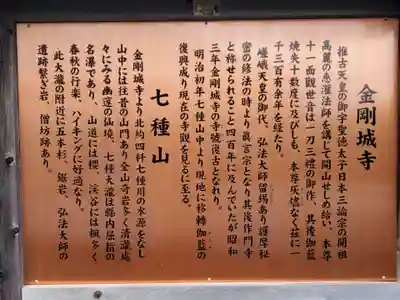 金剛城寺
推古天皇の御宇聖徳太子日本三論宗の開祖
高麗の恵灌法師を講じて開山せしめ給い、本尊
十一面観世音は一刀三禮の御作、其後伽藍
焼失十数度に及びしも、本尊灰儘なく茲に一
千三百有余年を経たり。
嵯峨天皇の御代、弘法大師留錫あり護摩秘
密の修法の時より眞言宗となり其後作門寺
と称せられること四百年に及んでいたが昭和
三年金剛城寺の寺號復古となれり。
明治初年七種山中より現地に移轉伽藍の
復興成り現在の寺観を見るに至る。
七種山
金剛城寺より北約四粁七種川の水源をなし
山中には往昔の山門あり全山奇岩多く清瀧處
々にみる幽邃の仙境、七種大瀧は縣内屈指の
名瀑であり、山道には櫻、渓谷には楓多く
春秋の行楽、ハイキングに好適なり。
此大瀧の附近に五本杉、鋸岩、弘法大師の
遺跡繋ぎ岩、僧坊跡あり。